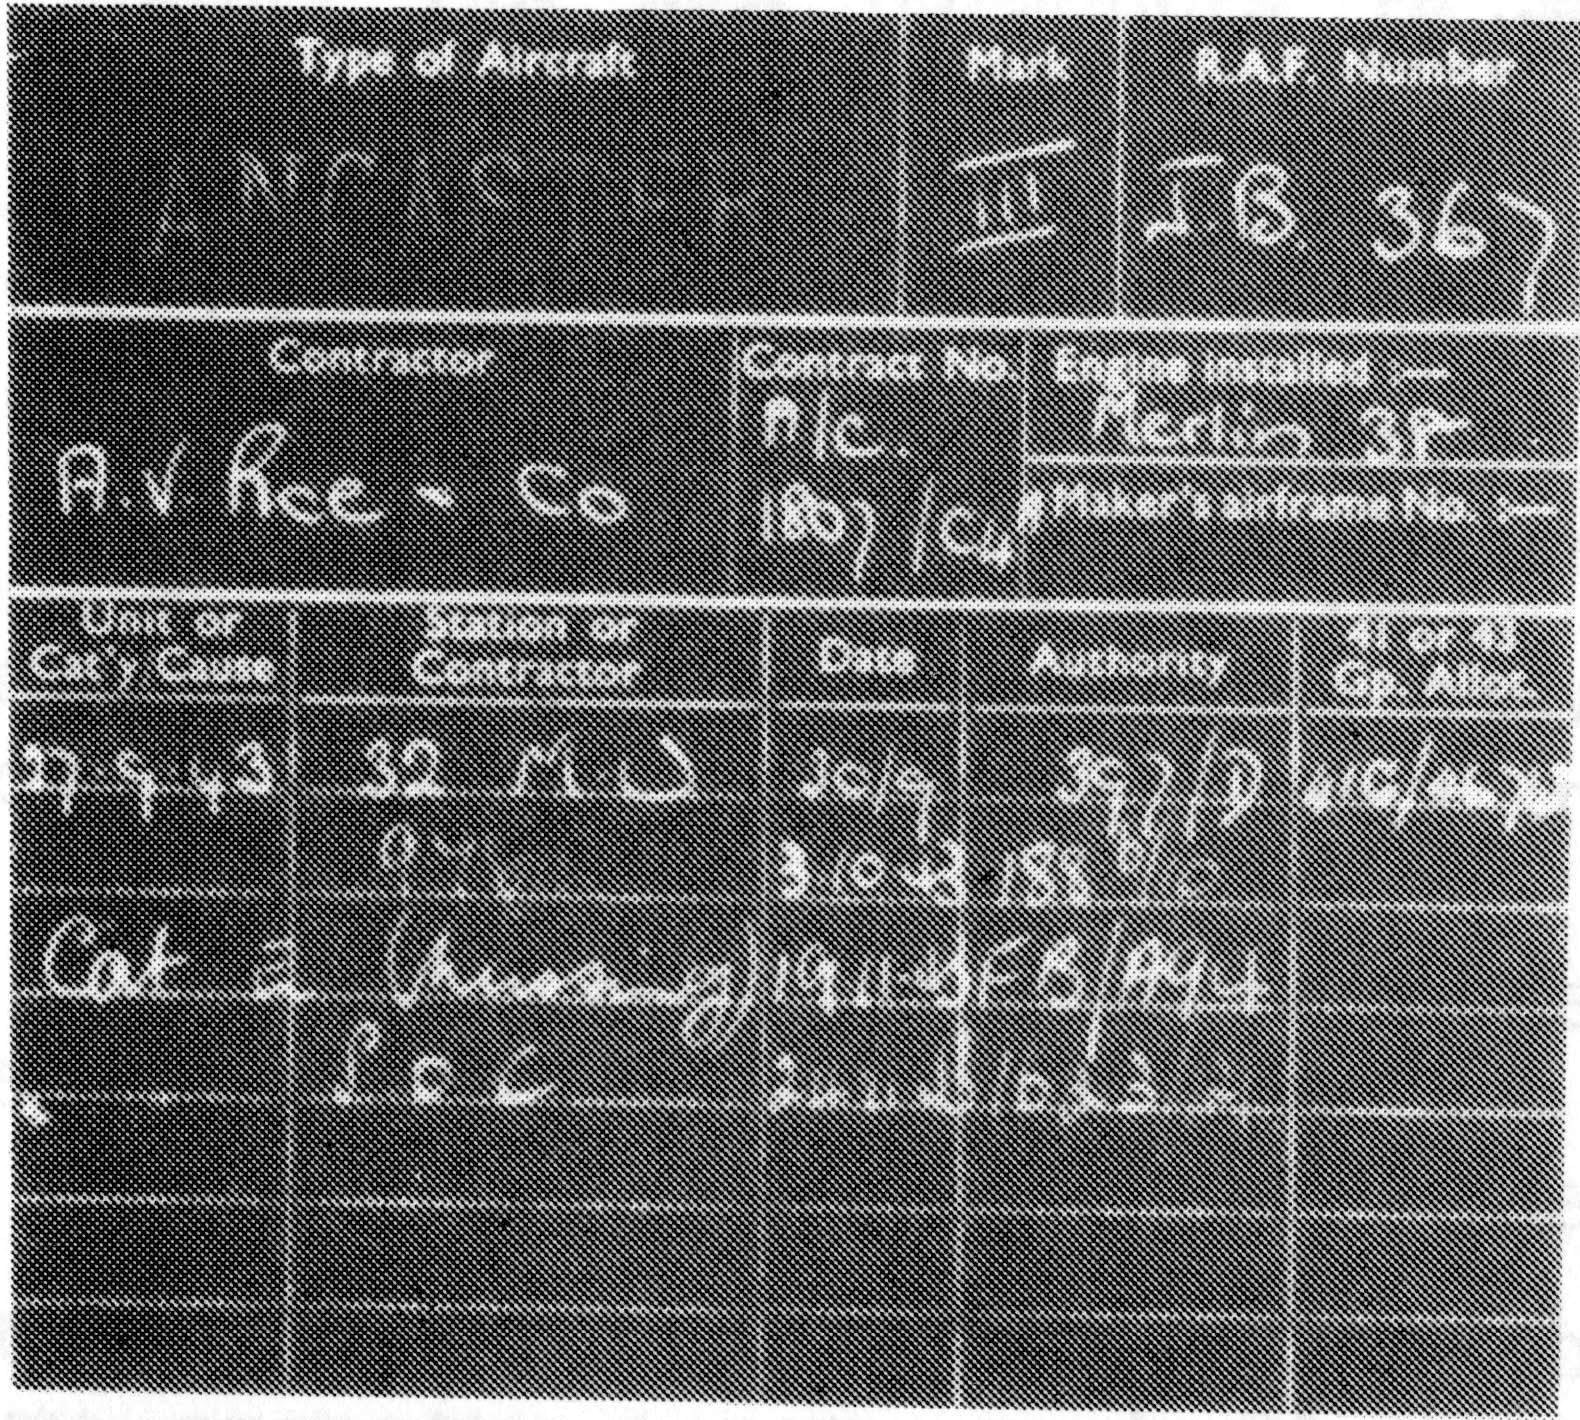 Type of Aircraft Mark R.A.F. Number
LANCASTER III J.B. 367
Contractor Contract No. Engine installed :—
A.V. Roe & Co A/C. 1807 / C4A Merlin 38
Maker's airframe No. :—
Unit or Cat'y Cause Station or Contractor Date Authority 41 or 43 Gp. Alloc.
27 9 43 32 M U 30/9 397/D
3.10.43 188
Cat E (missing) 19.11.43 FB/
S O C